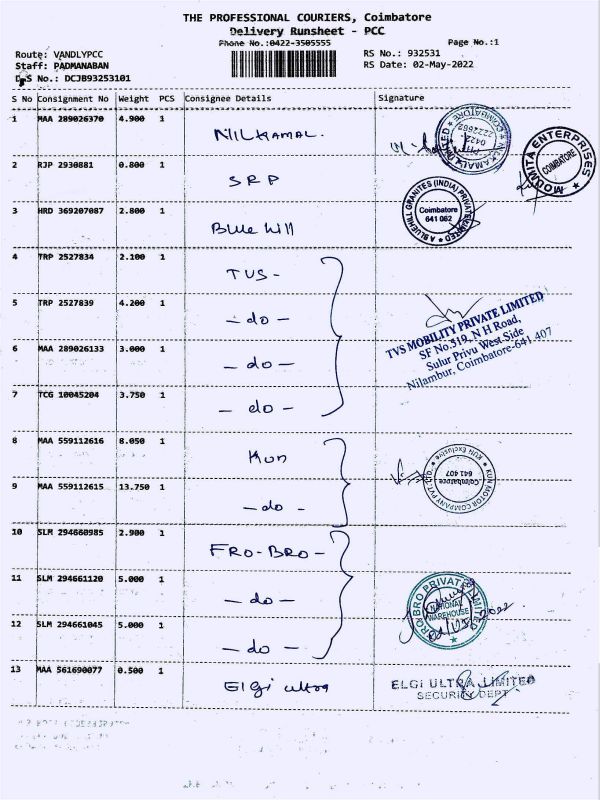 THE PROFESSIONAL COURIERS, Coimbatore
Delivery Runsheet - PCC
Phone No.:0422-3505555
Page No.:1
Route: VANDLYPCC
RS No.: 932531
Staff: PADMANABAN
RS Date: 02-May-2022
DRS No.: DCJB93253101
S No Consignment No Weight PCS Consignee Details Signature
1 MAA 289026370 4.900 1 NILKAMAL.
COIMBATORE
MOUMITA ENTERPRISES
COIMBATORE
2 RJP 2930881 0.800 1 SRP
3 HRD 369207087 2.800 1 Blue hill
BLUEHILL GRANITES (INDIA) PRIVATE LIMITED
Coimbatore
641 062
4 TRP 2527834 2.100 1 TVS -
5 TRP 2527839 4.200 1 - do -
TVS MOBILITY PRIVATE LIMITED
SF No.519, N H Road,
Sulur Privu West Side
Nilambur, Coimbatore-641 407
6 MAA 289026133 3.000 1 - do -
7 TCG 10045204 3.750 1 - do -
8 MAA 559112616 8.050 1 Kun
KUN MOTOR COMPANY PVT. LTD.
KUN Exclusive
Coimbatore
641 407
9 MAA 559112615 13.750 1 - do -
10 SLM 294660985 2.900 1 FRO-BRO -
11 SLM 294661120 5.000 1 - do -
BRO PRIVATE LIMITED
NATIONAL
WAREHOUSE
12 SLM 294661045 5.000 1 - do -
13 MAA 561690077 0.500 1 Elgi ultra
ELGI ULTRA LIMITED
SECURITY DEPT